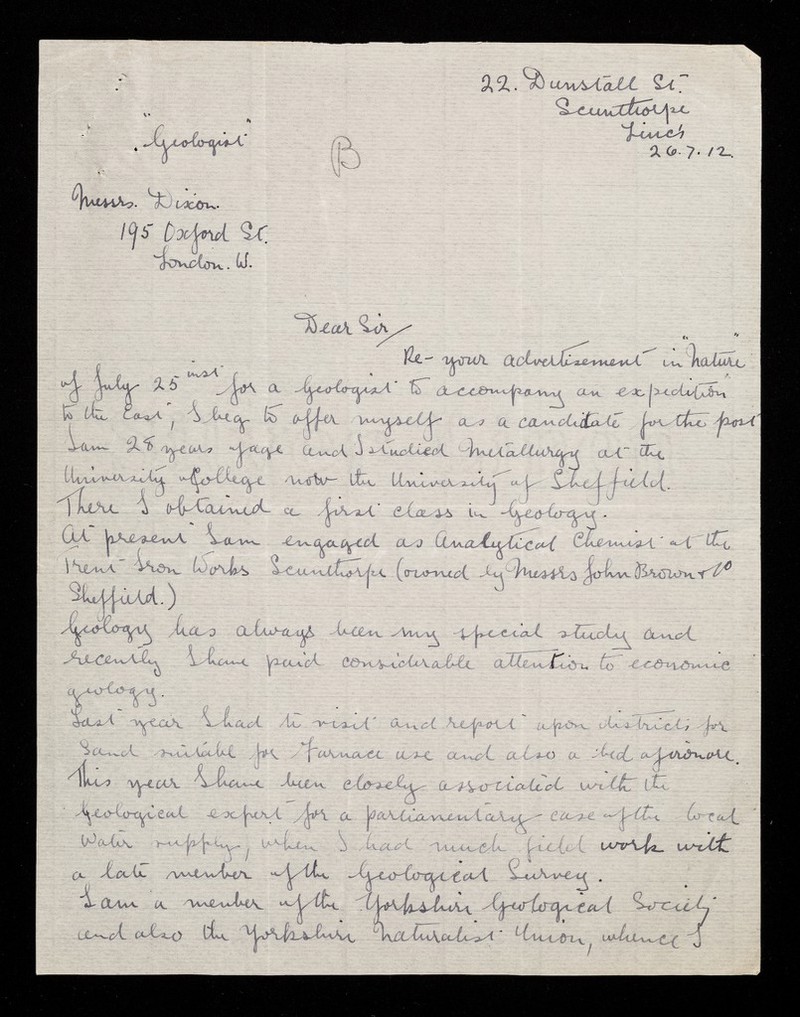 22. Dunstall St.
Scunthorpe
Lincs
26.7.12.
"Geologist"
B
Messrs. Dixon.
195 Oxford St.
London. W.
Dear Sir/
Re- your advertisement in "Nature"
of July 25 inst for a Geologist to accompany an expedition
to the East", I beg to offer myself as a candidate for the post
I am 28 years of age and I studied Metallurgy at the
University College now the University of Sheffield.
There I obtained a first class in Geology.
At present I am engaged as Analytical Chemist at the
Trent Iron Works Scunthorpe (owned by Messrs John Brown & Co
Sheffield.)
Geology has always been my special study and
recently I have paid considerable attention to economic
geology.
Last year I had to visit and report upon districts for
Sand suitable for Furnace use and also a bed of ironore.
This year I have been closely associated with the
Geological expert for a parliamentary case of the local
Water supply, when I had much field work with
a late member of the Geological Survey.
I am a member of the Yorkshire Geological Society
and also the Yorkshire Naturalist Union, whence I